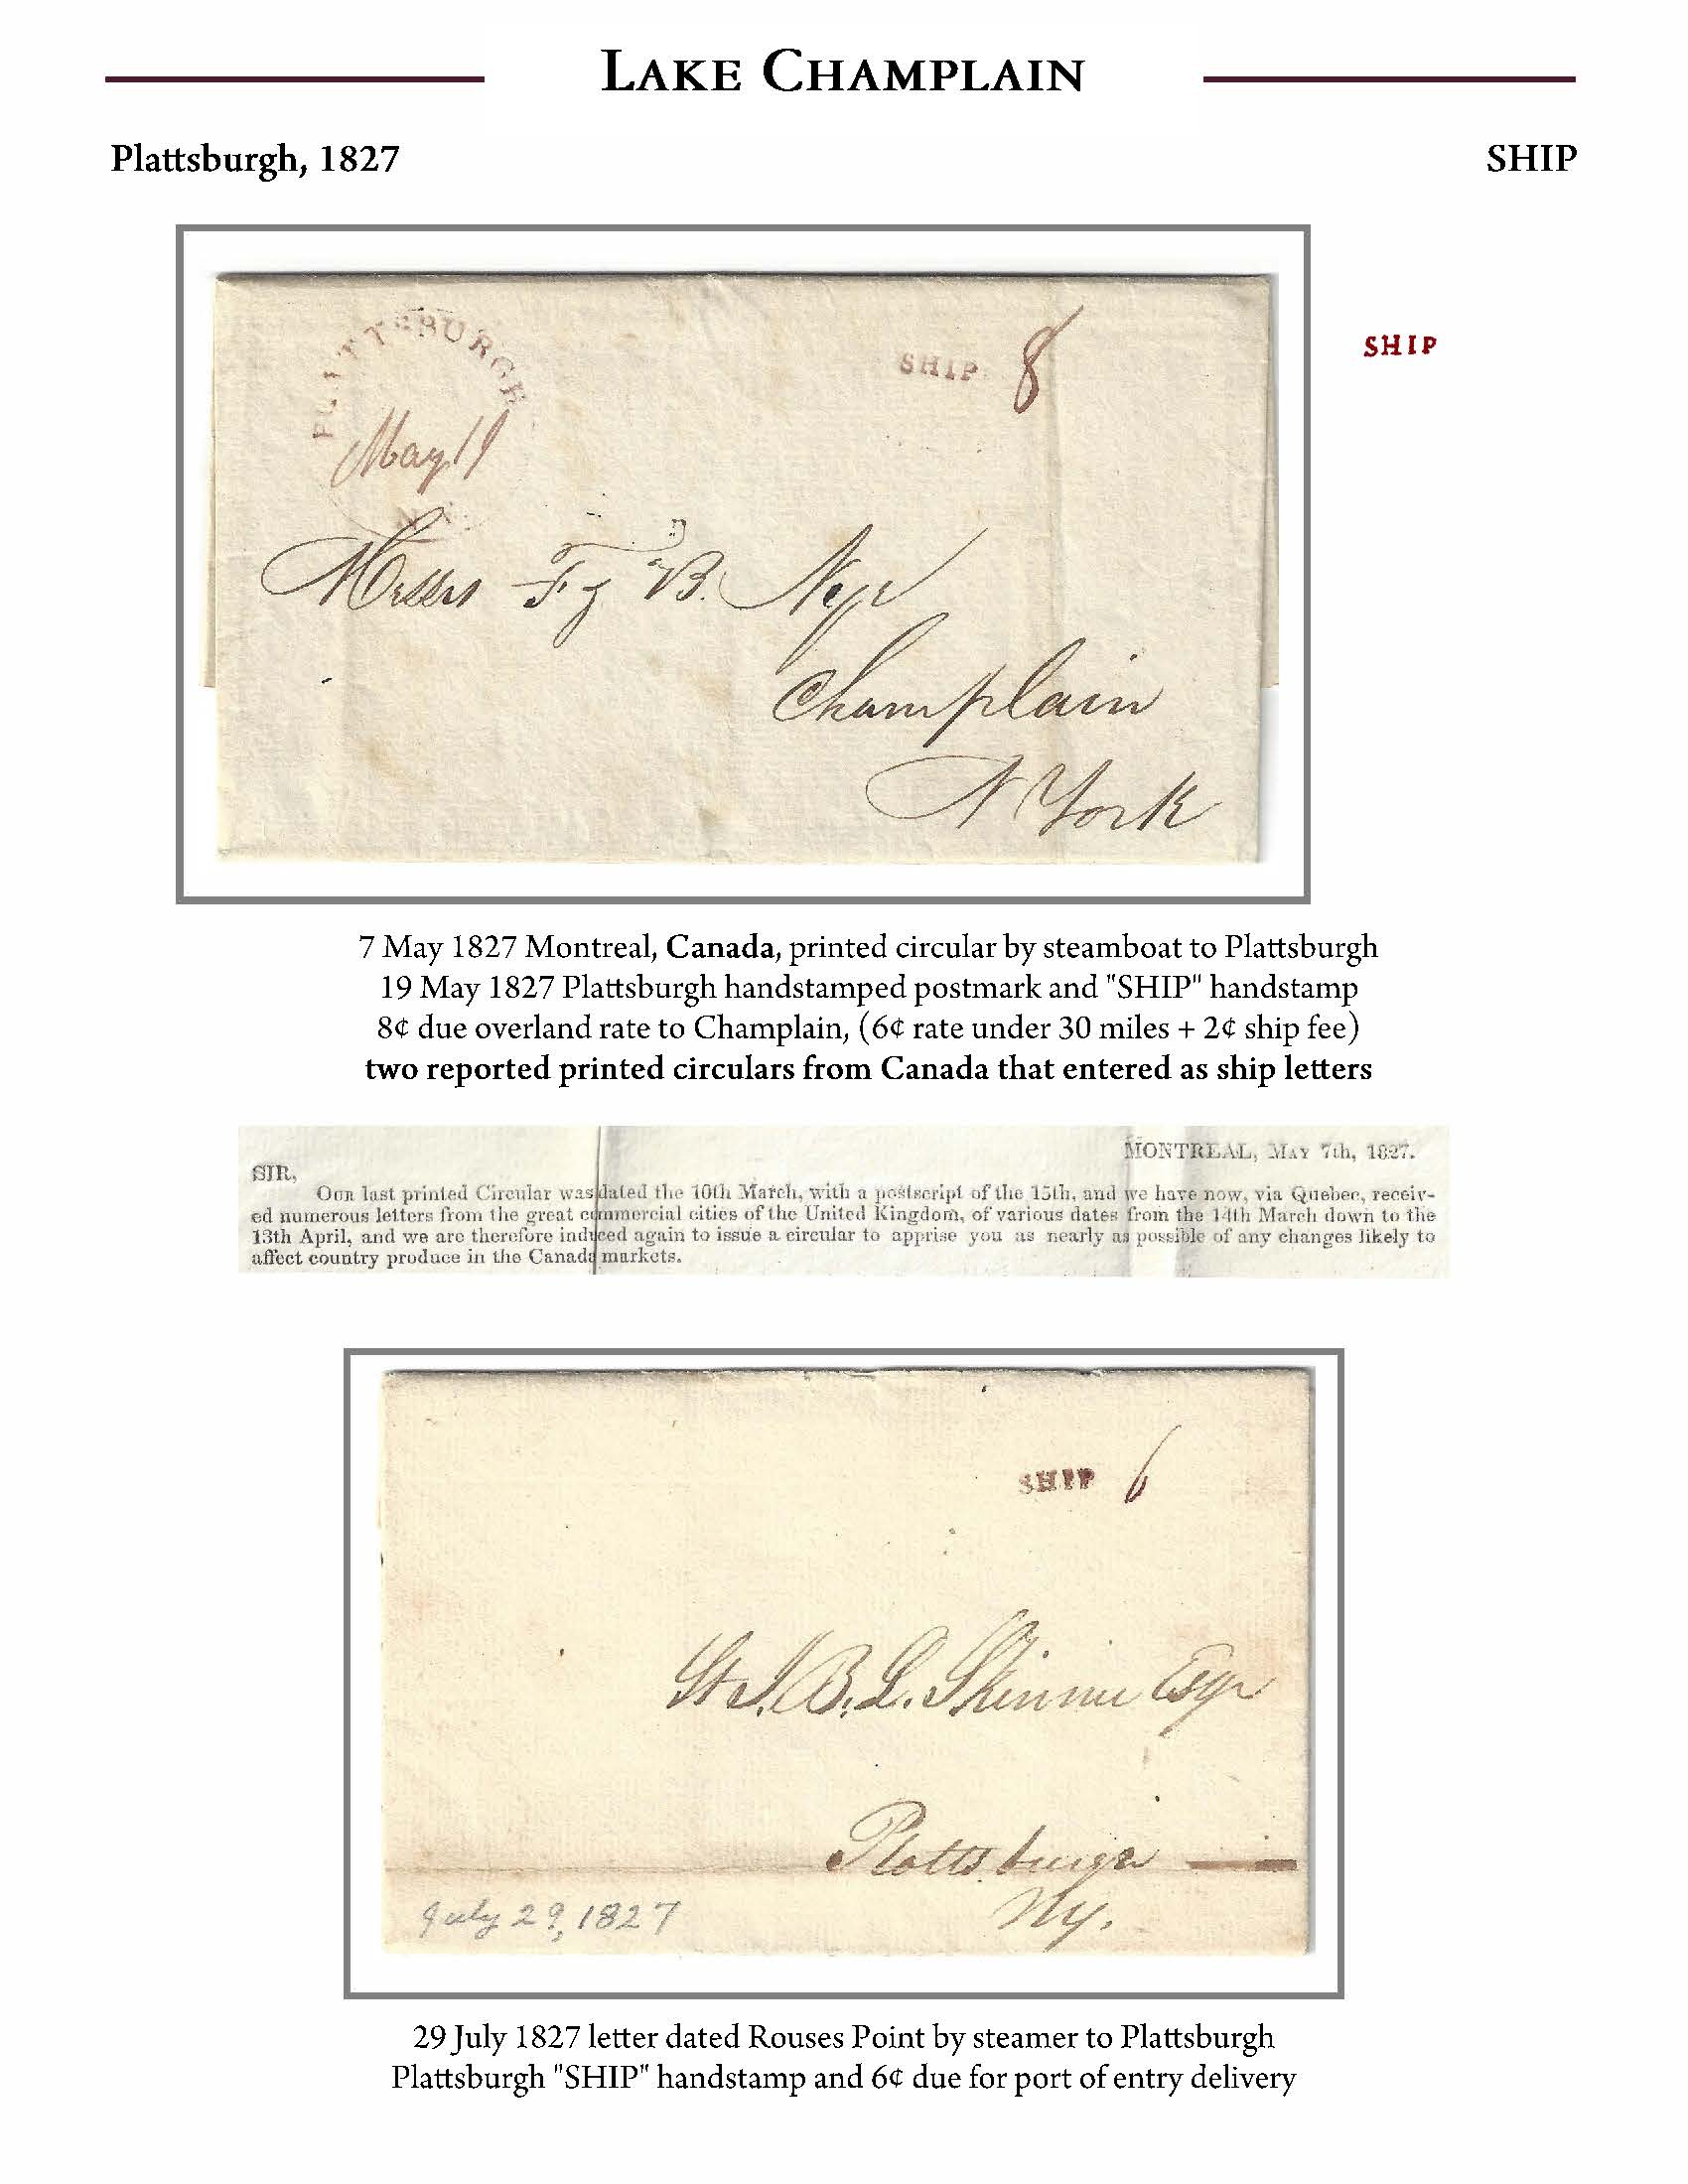 LAKE CHAMPLAIN
Plattsburgh, 1827
SHIP
PLATTSBURGH
SHIP 8
SHIP
May 19
N.Y.
Messrs F & B. Nye
Champlain
N York
7 May 1827 Montreal, Canada, printed circular by steamboat to Plattsburgh
19 May 1827 Plattsburgh handstamped postmark and "SHIP" handstamp
8¢ due overland rate to Champlain, (6¢ rate under 30 miles + 2¢ ship fee)
two reported printed circulars from Canada that entered as ship letters
MONTREAL, MAY 7th, 1827.
SIR,
OUR last printed Circular was dated the 10th March, with a postscript of the 15th, and we have now, via Quebec, receiv-
ed numerous letters from the great commercial cities of the United Kingdom, of various dates from the 14th March down to the
13th April, and we are therefore induced again to issue a circular to apprise you as nearly as possible of any changes likely to
affect country produce in the Canada markets.
SHIP 6
St. J. B. L. Skinner Esqr
Plattsburgh
Ny.
July 29, 1827
29 July 1827 letter dated Rouses Point by steamer to Plattsburgh
Plattsburgh "SHIP" handstamp and 6¢ due for port of entry delivery